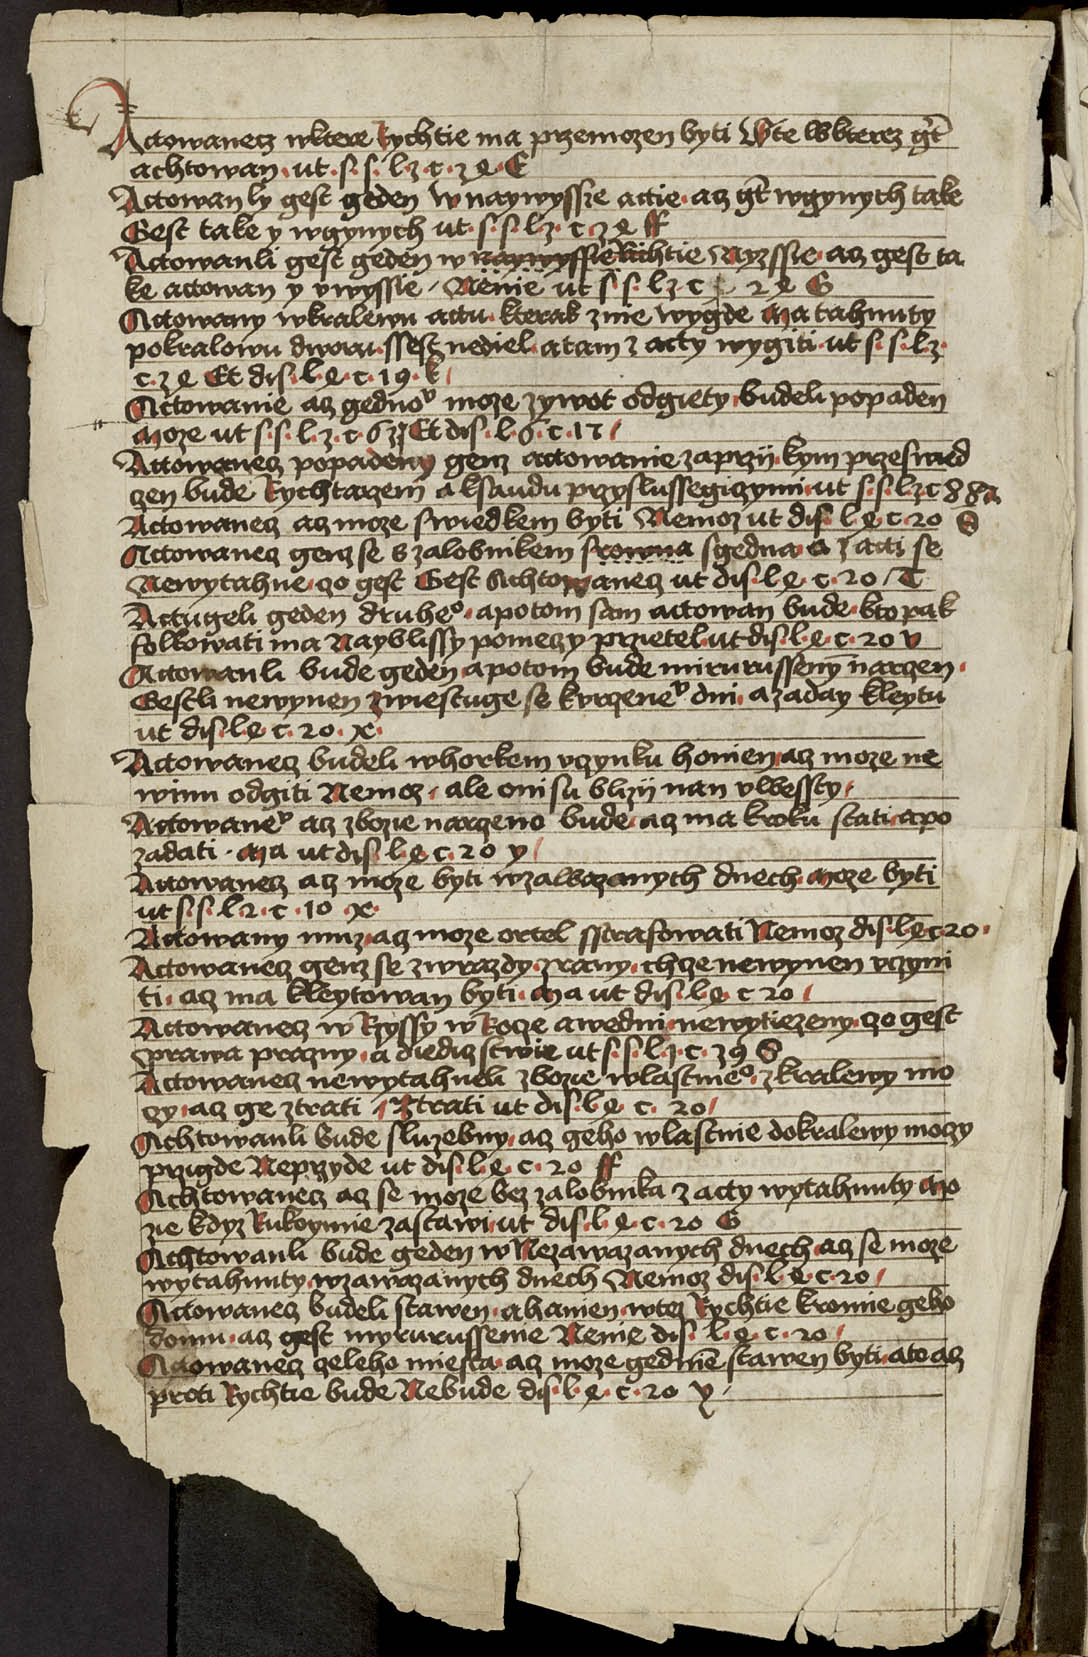 Actowanecz wktere Rychtie ma przemozen byti Wte wkterez gt
achtowan ut s. s. l. z. c. z e. E
Actowan ly gest geden w naywyssie actie acz gt wgynych take
Gest take y wgynych ut. s. s. l z. c. z e ff
Actowanli gest geden w naywyssie Richtie Nyzssie acz gest ta
ke actowan y vwyssie Nenie ut s. s. l z c 2 e G
Actowany wkralewu actu kterak znie wygde Ma tahnuty
pokralowu dworu ssest nediel a tam z acty wygiti ut s. s. l z.
c. z e Et dis. l. e. c. 19. k
Actowanie acz gedno moze zywot odgiety budeli popaden
Moze ut s. s. l. z. c. 6 Et dis. l. 6. c. 17
Actowanecz popadeny genz actowanie zaprzii kym przeswied
czen bude Rychtarzem a ksaudu przyslussegiczymi ut s. s. l z c 88 a
Actowanecz acz moze swiedkem byti Nemoz ut dis. l. e. c. 20 S
Actowanecz genz se s zalobnikem srowna sgedna a z acti se
Newytahne czo gest Gest Achtowanecz ut dis. l e. c. 20 T
Actugeli geden druheo apotom sam actowan bude kto pak
folkowati ma Nayblissy pomezy przietel ut dis. l. e. c. 20 v
Actowanli bude geden apotom bude mirurusseny narzen
Gestli newynen zwiestuge se krzene dni azaday kleytu
ut dis. l e c. 20. x
Actowanecz budeli whorkem vczynku honien acz moze ne
winu odgiti Nemoz ale oni su blizii nan vlwessty
Actowane acz zbozie narzeno bude acz ma kroku stati apo
zadati Ma ut dis. l. e c. 20 y
Actowanecz acz moze byti wzawazanych dnech Moze byti
ut s. s. l 2. c. 10 x
Actowany muz acz moze ortel sstrafowati Nemoz dis. l e c 20
Actowanecz genz se zwrazdy zrany chze newynen vczyni
ti acz ma kleytowan byti Ma ut dis. l. e. c 20
Actowanecz w Rzyssy w Rocze awedni newytiezeny czo gest
Sprawa prazny a diediczstwie ut s. s. l z. c. z 9 S
Actowanecz newytahneli zbozie wlastnieo zkralewy mo
czy acz ge ztrati Ztrati ut dis. l. e c. 20
Achtowanli bude sluzebny acz geho wlastnie dokralewy moczy
przigde Neprzyde ut dis. l. e. c. 20 ff
Achtowanecz acz se moze bez zalobnika z acty wytahnuty Mo
zie kdyz Rukoymie zastawi ut dis. l. e. c. 20 G
Achtowanli bude geden w Nezawazanych dnech acz se moze
wytahnuty wzawazanych dnech Nemoz dis. l. e. c. 20
Actowanecz budeli stawen a hanien wtez Rychtie kromie geho
domu acz gest myrurussenie Nenie dis. l. e. c. 20
Actowanecz czeleho miesta acz moze gednie stawen byti ato acz
proti Rychtie bude Nebude dis. l. e. c. 20 y